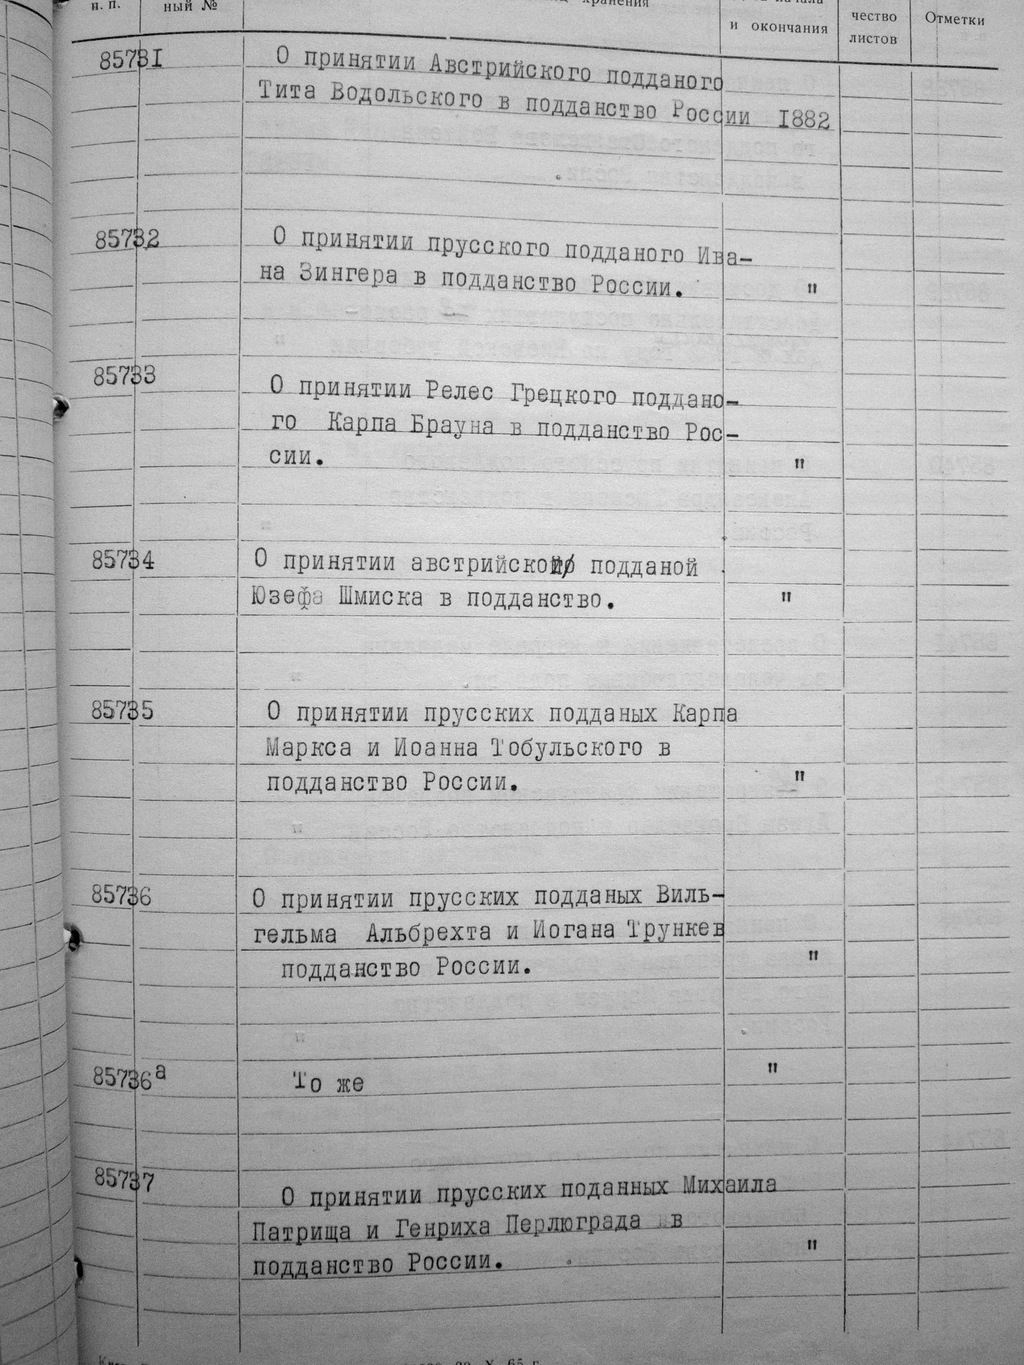 н. п.
ный №
хранения
и окончания
чество
листов
Отметки
85731
О принятии Австрийского подданого
Тита Водольского в подданство России 1882
85732
О принятии прусского подданого Ива-
на Зингера в подданство России. "
85733
О принятии Релес Грецкого поддано-
го Карпа Брауна в подданство Рос-
сии. "
85734
О принятии австрийской подданой
Юзефа Шмиска в подданство. "
85735
О принятии прусских подданых Карпа
Маркса и Иоанна Тобульского в
подданство России. "
85736
О принятии прусских подданых Виль-
гельма Альбрехта и Иогана Трункев
подданство России. "
85736а
То же "
85737
О принятии прусских поданных Михаила
Патрища и Генриха Перлюграда в
подданство России. "